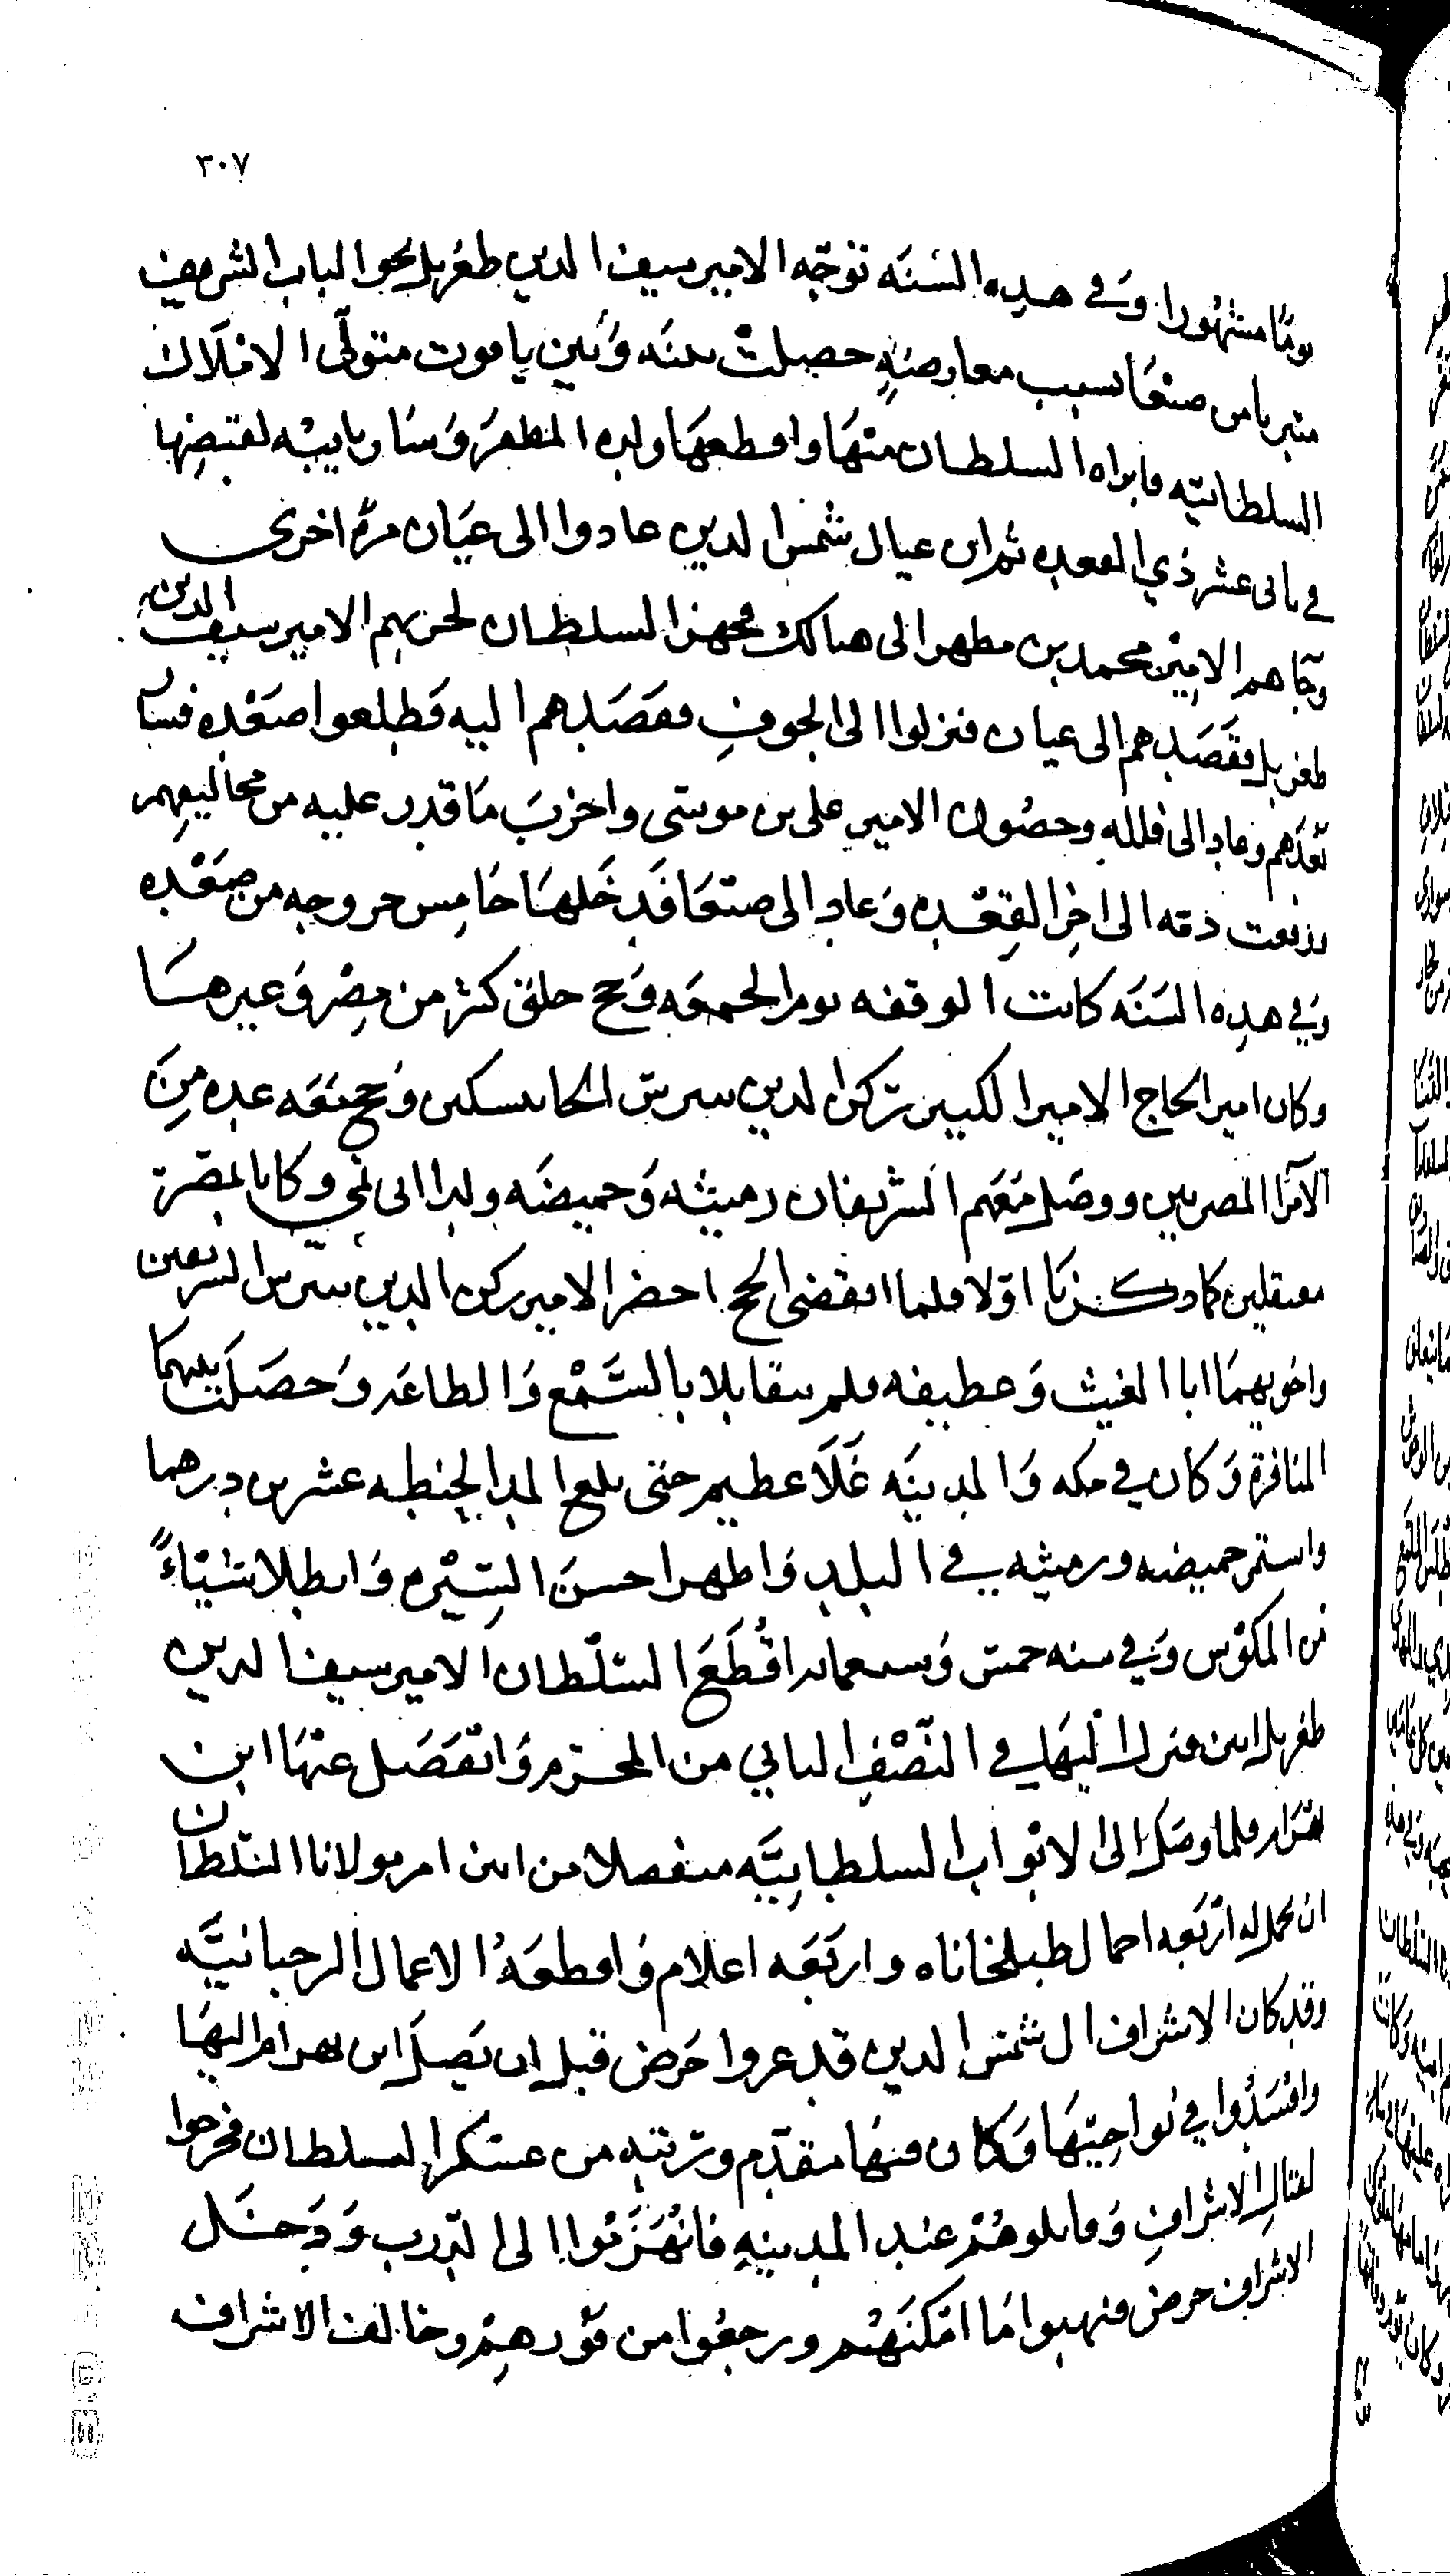 ٣٠٧
يومًا مشهورا وفي هذه السنه توجّه الامير سيف الدين طغربل نحو الباب الشريف
متبريا من صنعا بسبب معارضةٍ حصلت بينه وبين ياقوت متولّى الاملاك
السلطانيّه فابراه السلطان منها واقطعها ولده المظفر وسار نايبه لقبضها
في ثاني عشر ذي القعده ثم ان عيال شمس الدين عادوا الى عيان مرة اخرى
وجآهم الامير محمد بن مطهر الى هنالك فجهز السلطان لحربهم الامير سيف الدين
طغربل فقصدهم الى عيان فنزلوا الى الجوف فقصدهم اليه فطلعوا صعده فسار
بعدهم وعاد الى فلله وحصون الامير على بن موسى واخرب ما قدر عليه من مخاليفهم
الى اخر القعده وعاد الى صنعا فدخلها خامس خروجه من صعده
وفي هذه السنه كانت الوقفه يوم الجمعه وحج خلق كثر من مصر وغيرها
وكان امير الحاج الامير الكبير ركن الدين بيبرس الجاشنكير وحج معه عده من
الامرا المصريين ووصل معهم الشريفان رميثه وحميضه ولدا ابي نمي وكانا بمصر
معتقلين كما ذكرنا اوّلا فلما انقضى الحج احضر الامير ركن الدين بيبرس الشريفين
واخويهما ابا الغيث وعطيفه فلم يتقابلا بالسَّمْع والطاعه وحصلت بينهما
المنافرة وكان في مكه والمدينه غلا عظيم حتى بلغ المد الحنطه عشرين درهما
واستمر حميضه ورميثه في البلد واظهرا حسن السّيْره وابطلا شياءً
من المكوس وفي سنه خمس وسبعمائه اقطع السّلطان الامير سيف الدين
طغربل ابين فنزل اليها في النّصْف الثاني من المحرّم وانفصل عنها ابن
بهرام فلما وصل الى الابواب السلطانيَّه منفصلا من ابين امر مولانا السّلطان
ان يحمل له اربعه احمال طبلخاناه واربعه اعلام واقطعه الاعمال الرحبانيَّه
وقد كان الاشراف ال شمس الدين قد غزوا حرض قبل ان يصل ابن بهرام اليها
وافسدوا في نواحيها وكان فيها مقدّم ورتبه من عسكر السلطان فخرجوا
لقتال الاشراف وقاتلوهم عند المدينه فانهزموا الى الدرب ودخل
الاشراف حرض فنهبوا ما امكنهم ورجعوا من فورهم وخالف الاشراف